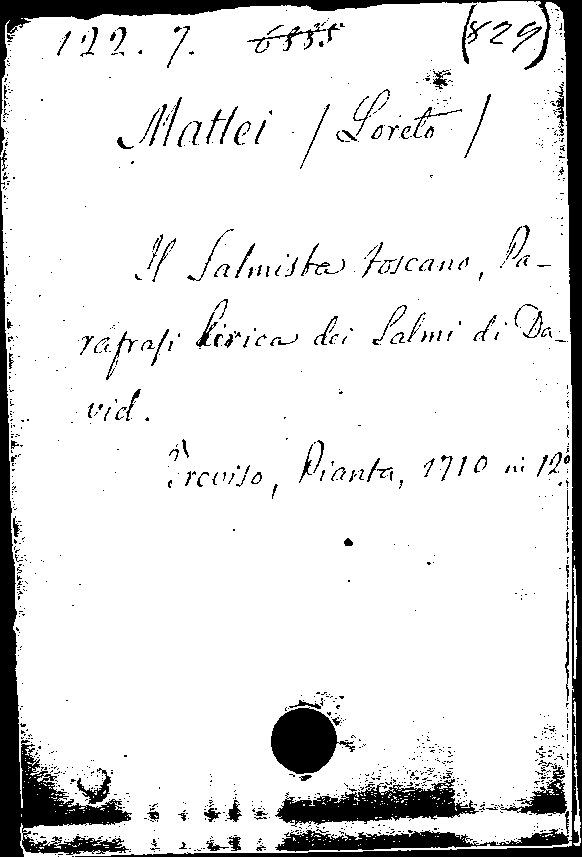 122. 7. 6555 (829)
Mattei / Loreto /
Il Salmista toscano, Pa-
rafrasi lirica dei Salmi di Da-
vid.
Treviso, Pianta, 1710 in 12º